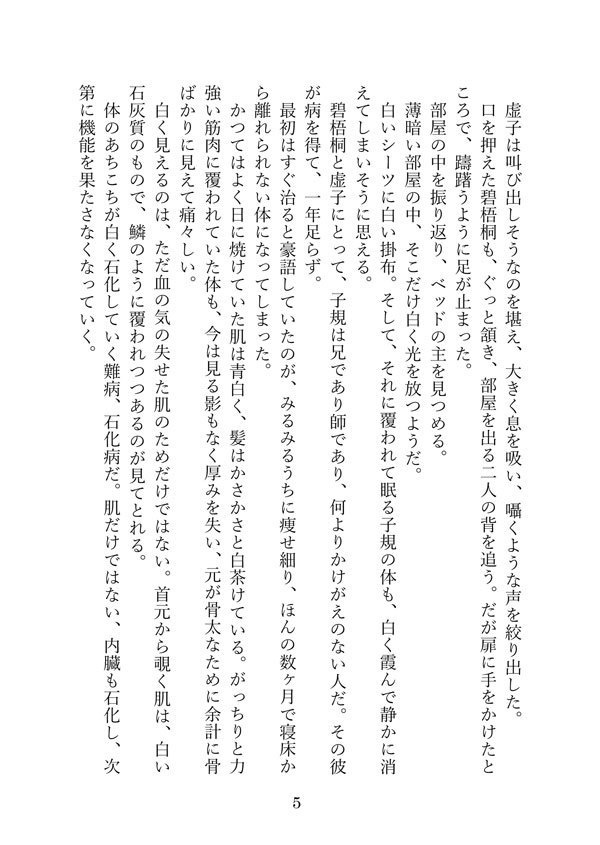 虚子は叫び出しそうなのを堪え、大きく息を吸い、囁くような声を絞り出した。
口を押えた碧梧桐も、ぐっと頷き、部屋を出る二人の背を追う。だが扉に手をかけたと
ころで、躊躇うように足が止まった。
部屋の中を振り返り、ベッドの主を見つめる。
薄暗い部屋の中、そこだけ白く光を放つようだ。
白いシーツに白い掛布。そして、それに覆われて眠る子規の体も、白く霞んで静かに消
えてしまいそうに思える。
碧梧桐と虚子にとって、子規は兄であり師であり、何よりかけがえのない人だ。その彼
が病を得て、一年足らず。
最初はすぐ治ると豪語していたのが、みるみるうちに痩せ細り、ほんの数ヶ月で寝床か
ら離れられない体になってしまった。
かつてはよく日に焼けていた肌は青白く、髪はかさかさと白茶けている。がっちりと力
強い筋肉に覆われていた体も、今は見る影もなく厚みを失い、元が骨太なために余計に骨
ばかりに見えて痛々しい。
白く見えるのは、ただ血の気の失せた肌のためだけではない。首元から覗く肌は、白い
石灰質のもので、鱗のように覆われつつあるのが見てとれる。
体のあちこちが白く石化していく難病、石化病だ。肌だけではない、内臓も石化し、次
第に機能を果たさなくなっていく。
5